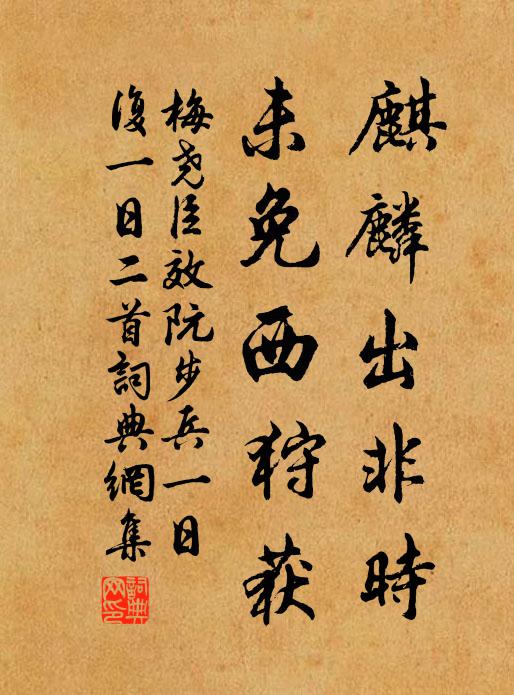 麒麟出非時
未免西狩获
梅堯臣效阮步兵一日
復一日二首詞典網集
詞典网印